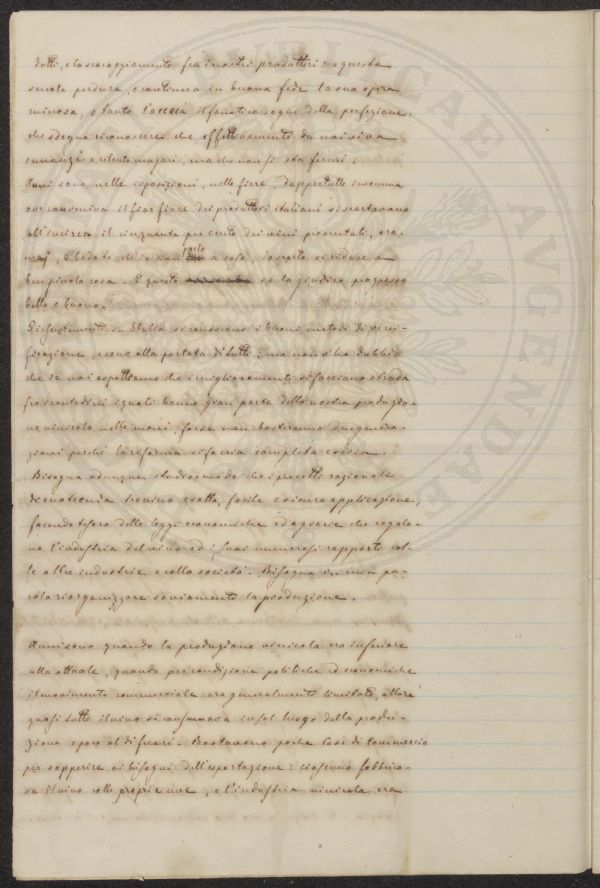 dotti, e lo scoraggiamento fra i nostri produttori: e questa
scuola perdura, e continua in buona fede la sua opera
rovinosa, e tanto l'accieca il fanatico sogno della perfezione
che sdegna riconoscere che effettivamente da noi si va
innanzi a rilento magari, ma che non si sta fermi.
Anni sono nelle esposizioni, nelle fiere, dappertutto insomma
ove conveniva il fior fiore dei produttori italiani si scartavano
all'incirca il cinquanta per cento dei vini presentati, ora-
mai, e badate ch'io non parlo a caso, lo scarto si riduce a
ben piccola cosa. E questo io lo giudico progresso
bello e buono.
Insegnamenti in Italia si conoscono i buoni metodi di vini-
ficazione, e sono alla portata di tutti; ma non v'ha dubbio
che se noi aspettiamo che i miglioramenti si facciano strada
fra i contadini i quali hanno gran parte della nostra produzio-
ne vinicola nelle mani, forse non basteranno due genera-
zioni perché la riforma si faccia completa e decisa.
Bisogna adunque studiar modo che i precetti razionali
di enotecnia trovino esatta, facile e sicura applicazione,
facendo tesoro delle leggi economiche ed agrarie che regola-
no l'industria del vino ed i suoi numerosi rapporti col-
le altre industrie e colla società. Bisogna in una pa-
rola riorganizzare saviamente la produzione.
Anni sono quando la produzione vinicola era inferiore
alla attuale, quando per condizione politiche ed economiche
il movimento commerciale era generalmente limitato, allora
quasi tutto il vino si consumava in sul luogo della produ-
zione o poco al di fuori. Bastavano poche Case di Commercio
per sopperire ai bisogni dell'esportazione: ciascuno fabbrica-
va il vino colle proprie uve, e l'industria vinicola era